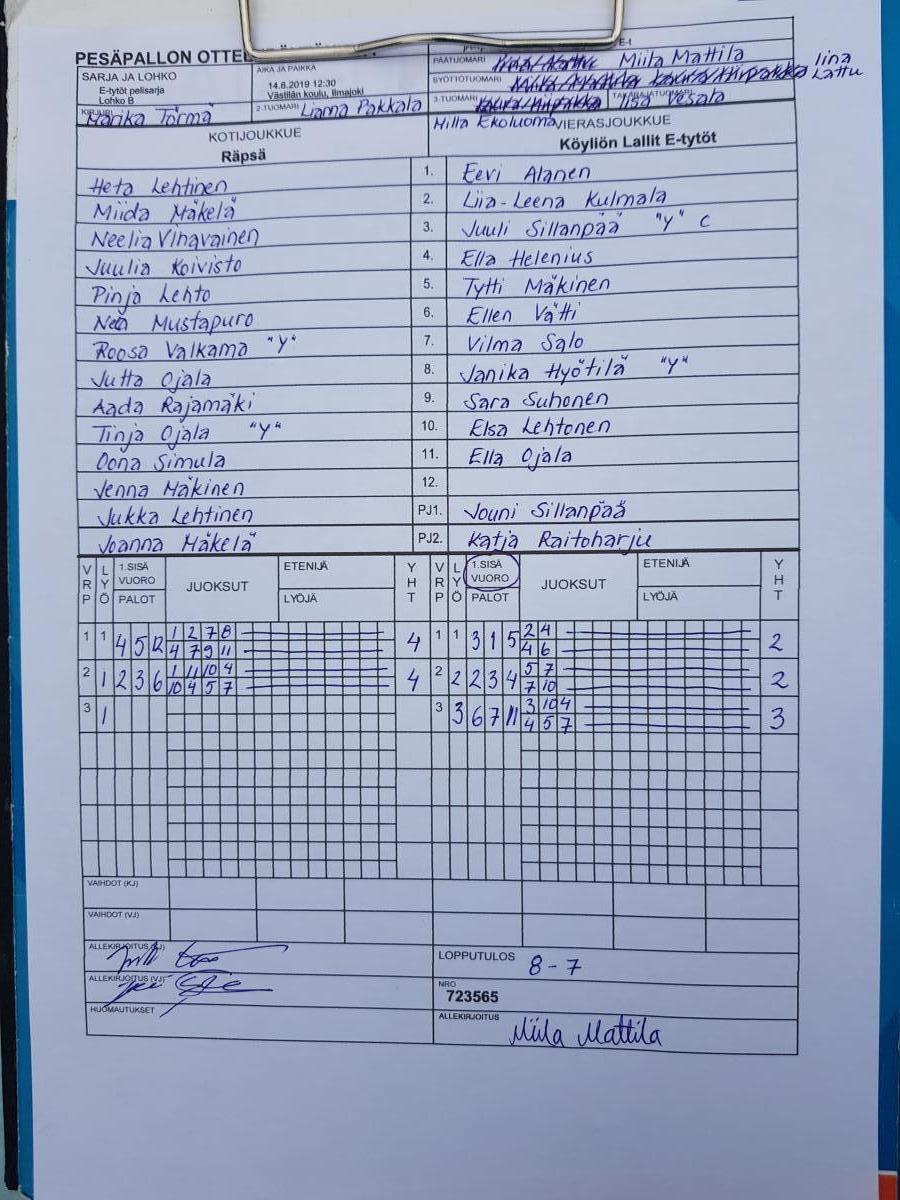 PESÄPALLON OTTEL
SARJA JA LOHKO
E-tytöt pelisarja
Lohko B
AIKA JA PAIKKA
14.6.2019 12:30
Västilän koulu, Ilmajoki
PÄÄTUOMARI Miila Mattila
SYÖTTÖTUOMARI Iina Lattu
KIRJURI Marika Törmä
2-TUOMARI Liama Pakkala
3-TUOMARI TAKARAJATUOMARI Iisa Vesala
Milla Ekoluoma
KOTIJOUKKUE
Räpsä
VIERASJOUKKUE
Köyliön Lallit E-tytöt
Heta Lehtinen 1. Eevi Alanen
Miida Mäkelä 2. Liia-Leena Kulmala
Neelia Vihavainen 3. Juuli Sillanpää "Y" C
Juulia Koivisto 4. Ella Helenius
Pinja Lehto 5. Tytti Mäkinen
Nea Mustapuro 6. Ellen Vätti
Roosa Valkama "Y" 7. Vilma Salo
Jutta Ojala 8. Janika Hyötilä "Y"
Aada Rajamäki 9. Sara Suhonen
Tinja Ojala "Y" 10. Elsa Lehtonen
Oona Simula 11. Ella Ojala
Jenna Mäkinen 12.
Jukka Lehtinen PJ1. Jouni Sillanpää
Joanna Mäkelä PJ2. Katja Raitoharju
VRP LYÖ 1.SISÄ VUORO PALOT JUOKSUT ETENIJÄ LYÖJÄ YHT VRP LYÖ 1.SISÄ VUORO PALOT JUOKSUT ETENIJÄ LYÖJÄ YHT
1 1 4 5 12 1 2 7 8 4 1 1 3 1 5 2 4 2
4 7 9 11 4 6
2 1 2 3 6 1 11 10 4 4 2 2 2 3 4 5 7 2
10 4 5 7 7 10
3 1 3 3 6 7 11 3 10 4 3
4 5 7
VAIHDOT (KJ)
VAIHDOT (VJ)
ALLEKIRJOITUS (KJ)
ALLEKIRJOITUS (VJ)
HUOMAUTUKSET
LOPPUTULOS 8-7
NRO
723565
ALLEKIRJOITUS
Miila Mattila